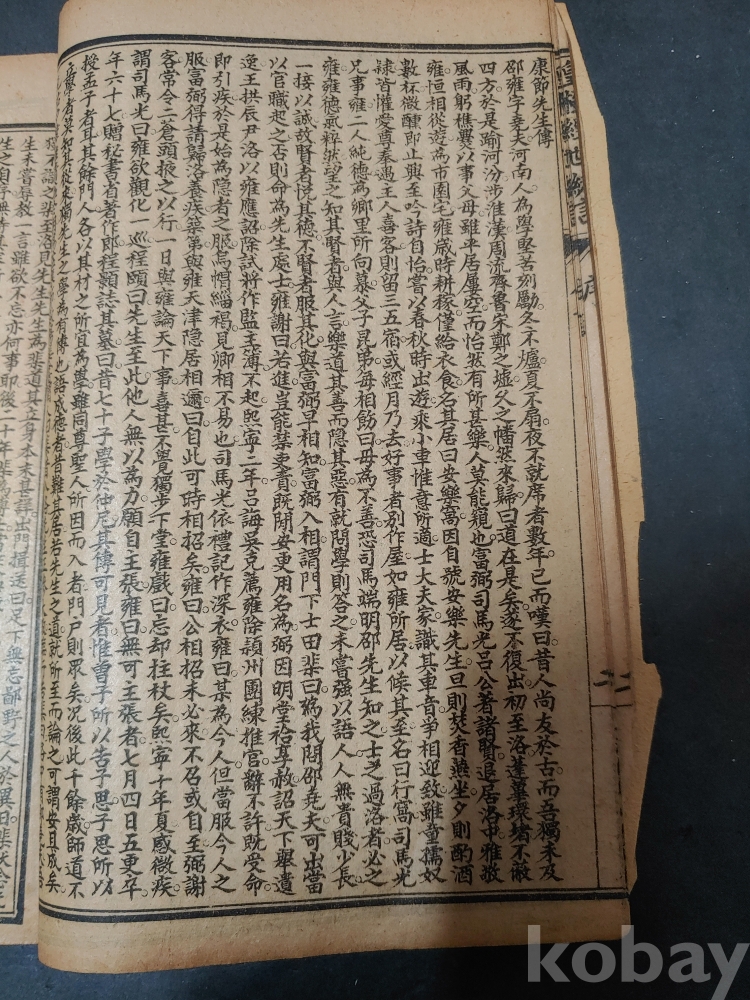 康節先生傳
邵雍字堯夫河南人為學堅苦刻勵冬不爐夏不扇夜不就席者數年已而嘆曰昔人尚友於古而吾獨未及
四方於是踰河汾涉淮漢周流齊魯宋鄭之墟久之幡然來歸曰道在是矣遂不復出初至洛蓬蓽環堵不蔽
風雨躬樵爨以事父母雖平居屢空而怡然有所甚樂人莫能窺也富弼司馬光呂公著諸賢退居洛中雅敬
雍恒相從遊為市園宅雍歲時耕稼僅給衣食名其居曰安樂窩因自號安樂先生旦則焚香燕坐夕則酌酒
數杯微醺即止興至吟詩自怡嘗以春秋時出遊乘小車惟意所適士大夫家識其車音爭相迎致雖童孺奴
隸皆懽愛尊奉遇主人喜客則留三五宿或經月乃去好事者別作屋如雍所居以候其至名曰行窩司馬光
兄事雍二人純德為鄉里所向慕父子昆弟每相飭曰毋為不善恐司馬端明邵先生知之士之過洛者必之
雍雍德氣粹然望之知其賢者與人言樂道其善而隱其惡有就問學則答之未嘗強以語人人無貴賤少長
一接以誠故賢者悅其德不賢者服其化與富弼早相知富弼入相謂門下士田棐曰為我問邵堯夫可出當
以官職起之否則命為先生處士雍謝曰若進豈能禁吏責既閒安更用名為弼因明堂祫享赦詔天下舉遺
逸王拱辰尹洛以雍應詔除試將作監主薄不起熙寧二年呂誨吳克薦雍除潁州團練推官辭不許既受命
即引疾於是始為隱者之服烏帽緇褐見卿相不易也司馬光依禮記作深衣雍曰某為今人但當服今人之
服富弼得請歸洛養疾築第與雍天津隱居相邇曰自此可時相招矣雍曰公相招未必來不召或自至弼謝
客常令二蒼頭掖之以行一日與雍論天下事喜甚不覺獨步下堂雍戲曰忘却柱杖矣熙寧十年夏感微疾
謂司馬光曰雍欲觀化一巡程頤曰先生至此他人無以為力願自主張雍曰無可主張者七月四日五更卒
年六十七贈秘書省著作郎程顥誌其墓曰昔七十子學於仲尼其傳可見者惟曾子所以告子思子思所以
授孟子者耳其餘門人各以其材之所宜為學雖同尊聖人所因而入者門戶則眾矣況後此千餘歲師道不
立學者莫知其從來獨先生之學為有傳也語成德者昔難其居若先生之道就所至而論之可謂安且成矣
二二
生未嘗辱教一言雖欲不忘亦何事即後二十年棐為
kobay